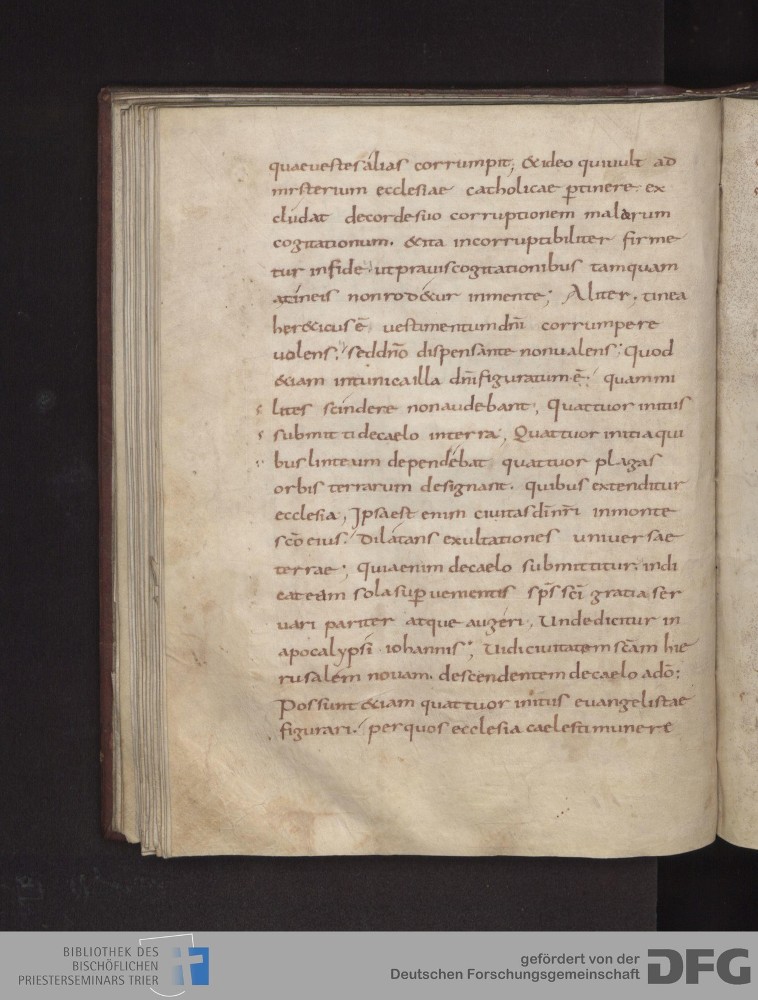 quae uestes alias corrumpit; & ideo qui uult ad
misterium ecclesiae catholicae ptinere. ex
cludat de corde suo corruptionem malarum
cogitationum. & ita incorruptibiliter firme
tur in fide. ut prauis cogitationibus tamquam
a tineis non rod&ur in mente; Aliter. tinea
her&icus ē uestimentum dn̄i corrumpere
uolens. sed dn̄o dispensante non ualens; quod
&iam in tunica illa dn̄i figuratum ē. quam mi
lites scindere non audebant; Quattuor initiis
submitti de caelo in terra; Quattuor initia qui
bus linteum dependebat quattuor plagas
orbis terrarum designant. quibus extenditur
ecclesia; Ipsa est enim ciuitas dī nr̄i in monte
sc̄o eius. dilatans exultationes uniuersae
terrae; quia enim de caelo submittitur. indi
cat eam sola sup uenientis sp̄s sc̄i gratia ser
uari pariter atque augeri; Unde dicitur in
apocalypsi iohannis; Uidi ciuitatem sc̄am hie
rusalem nouam. descendentem de caelo a dō:
Possunt &iam quattuor initiis euangelistae
figurari. per quos ecclesia caelesti munere
BIBLIOTHEK DES
BISCHÖFLICHEN
PRIESTERSEMINARS TRIER
gefördert von der
Deutschen Forschungsgemeinschaft
DFG